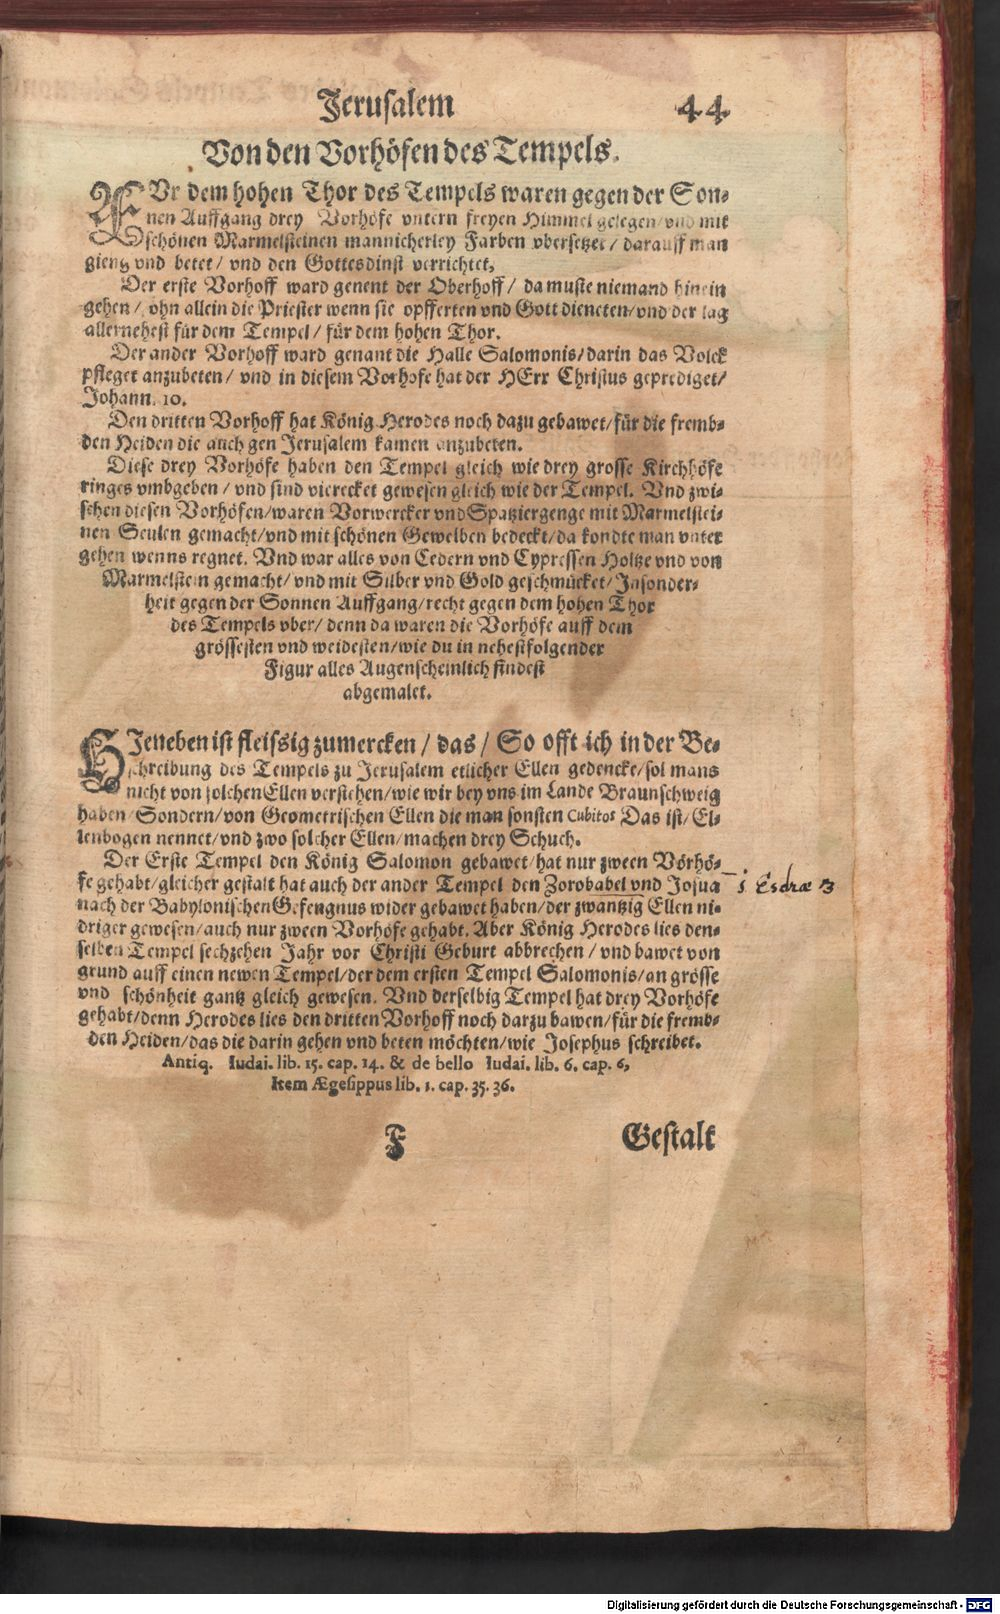 Jerusalem 44
Von den Vorhöfen des Tempels.
FVr dem hohen Thor des Tempels waren gegen der Son-
nen Auffgang drey Vorhöfe vntern freyen Himmel gelegen/vnd mit
schönen Marmelsteinen mannicherley Farben vbersetzet/darauff man
gieng vnd betet/vnd den Gottesdinst verrichtet,
Der erste Vorhoff ward genent der Oberhoff/da muste niemand hinein
gehen/ohn allein die Priester wenn sie opfferten vnd Gott dieneten/vnd der lag
allernehest für dem Tempel/für dem hohen Thor.
Der ander Vorhoff ward genant die Halle Salomonis/darin das Volck
pfleget anzubeten/vnd in diesem Vorhofe hat der HErr Christus geprediget/
Johann. 10.
Den dritten Vorhoff hat König Herodes noch dazu gebawet/für die fremb-
den Heiden die auch gen Jerusalem kamen anzubeten.
Diese drey Vorhöfe haben den Tempel gleich wie drey grosse Kirchhöfe
ringes vmbgeben/vnd sind vierecket gewesen gleich wie der Tempel. Vnd zwi-
schen diesen Vorhöfen/waren Vorwercker vnd Spatziergenge mit Marmelstei-
nen Seulen gemacht/vnd mit schönen Gewelben bedeckt/da kondte man vnter
gehen wenns regnet. Vnd war alles von Cedern vnd Cypressen Holtze vnd von
Marmelstein gemacht/vnd mit Silber vnd Gold geschmücket/Insonder-
heit gegen der Sonnen Auffgang/recht gegen dem hohen Thor
des Tempels vber/denn da waren die Vorhöfe auff dem
grössesten vnd weidesten/wie du in nehestfolgender
Figur alles Augenscheinlich findest
abgemalet.
HJeneben ist fleissig zumercken/das/So offt ich in der Be-
schreibung des Tempels zu Jerusalem etlicher Ellen gedencke/sol mans
nicht von solchen Ellen verstehen/wie wir bey vns im Lande Braunschweig
haben/Sondern/von Geometrischen Ellen die man sonsten Cubitos Das ist/El-
lenbogen nennet/vnd zwo solcher Ellen/machen drey Schuch.
Der Erste Tempel den König Salomon gebawet/hat nur zween Vörhö-
fe gehabt/gleicher gestalt hat auch der ander Tempel den Zorobabel vnd Josua
1 Esdræ 3
nach der Babylonischen Gefengnus wider gebawet haben/der zwantzig Ellen ni-
driger gewesen/auch nur zween Vorhöfe gehabt. Aber König Herodes lies den-
selben Tempel sechzehen Jahr vor Christi Geburt abbrechen/vnd bawet von
grund auff einen newen Tempel/der dem ersten Tempel Salomonis/an grösse
vnd schönheit gantz gleich gewesen. Vnd derselbig Tempel hat drey Vorhöfe
gehabt/denn Herodes lies den dritten Vorhoff noch darzu bawen/für die fremb-
den Heiden/das die darin gehen vnd beten möchten/wie Josephus schreibet.
Antiq. Iudai. lib. 15. cap. 14. & de bello Iudai. lib. 6. cap. 6,
Item Ægesippus lib. 1. cap. 35. 36.
F Gestalt
Digitalisierung gefördert durch die Deutsche Forschungsgemeinschaft - DFG